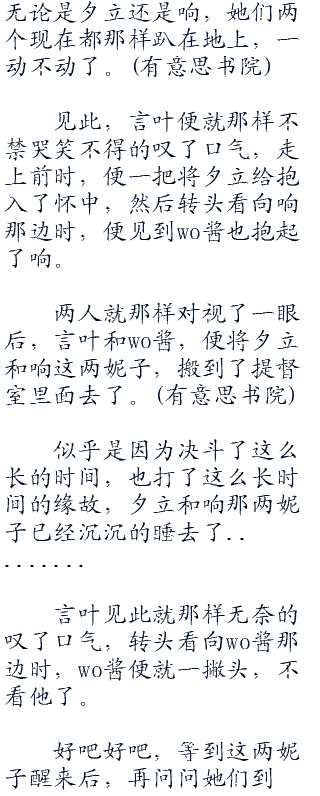 无论是夕立还是响，她们两
个现在都那样趴在地上，一
动不动了。(有意思书院)
见此，言叶便就那样不
禁哭笑不得的叹了口气，走
上前时，便一把将夕立给抱
入了怀中，然后转头看向响
那边时，便见到wo酱也抱起
了响。
两人就那样对视了一眼
后，言叶和wo酱，便将夕立
和响这两妮子，搬到了提督
室里面去了。(有意思书院)
似乎是因为决斗了这么
长的时间，也打了这么长时
间的缘故，夕立和响那两妮
子已经沉沉的睡去了..
.......
言叶见此就那样无奈的
叹了口气，转头看向wo酱那
边时，wo酱便就一撇头，不
看他了。
好吧好吧，等到这两妮
子醒来后，再问问她们到